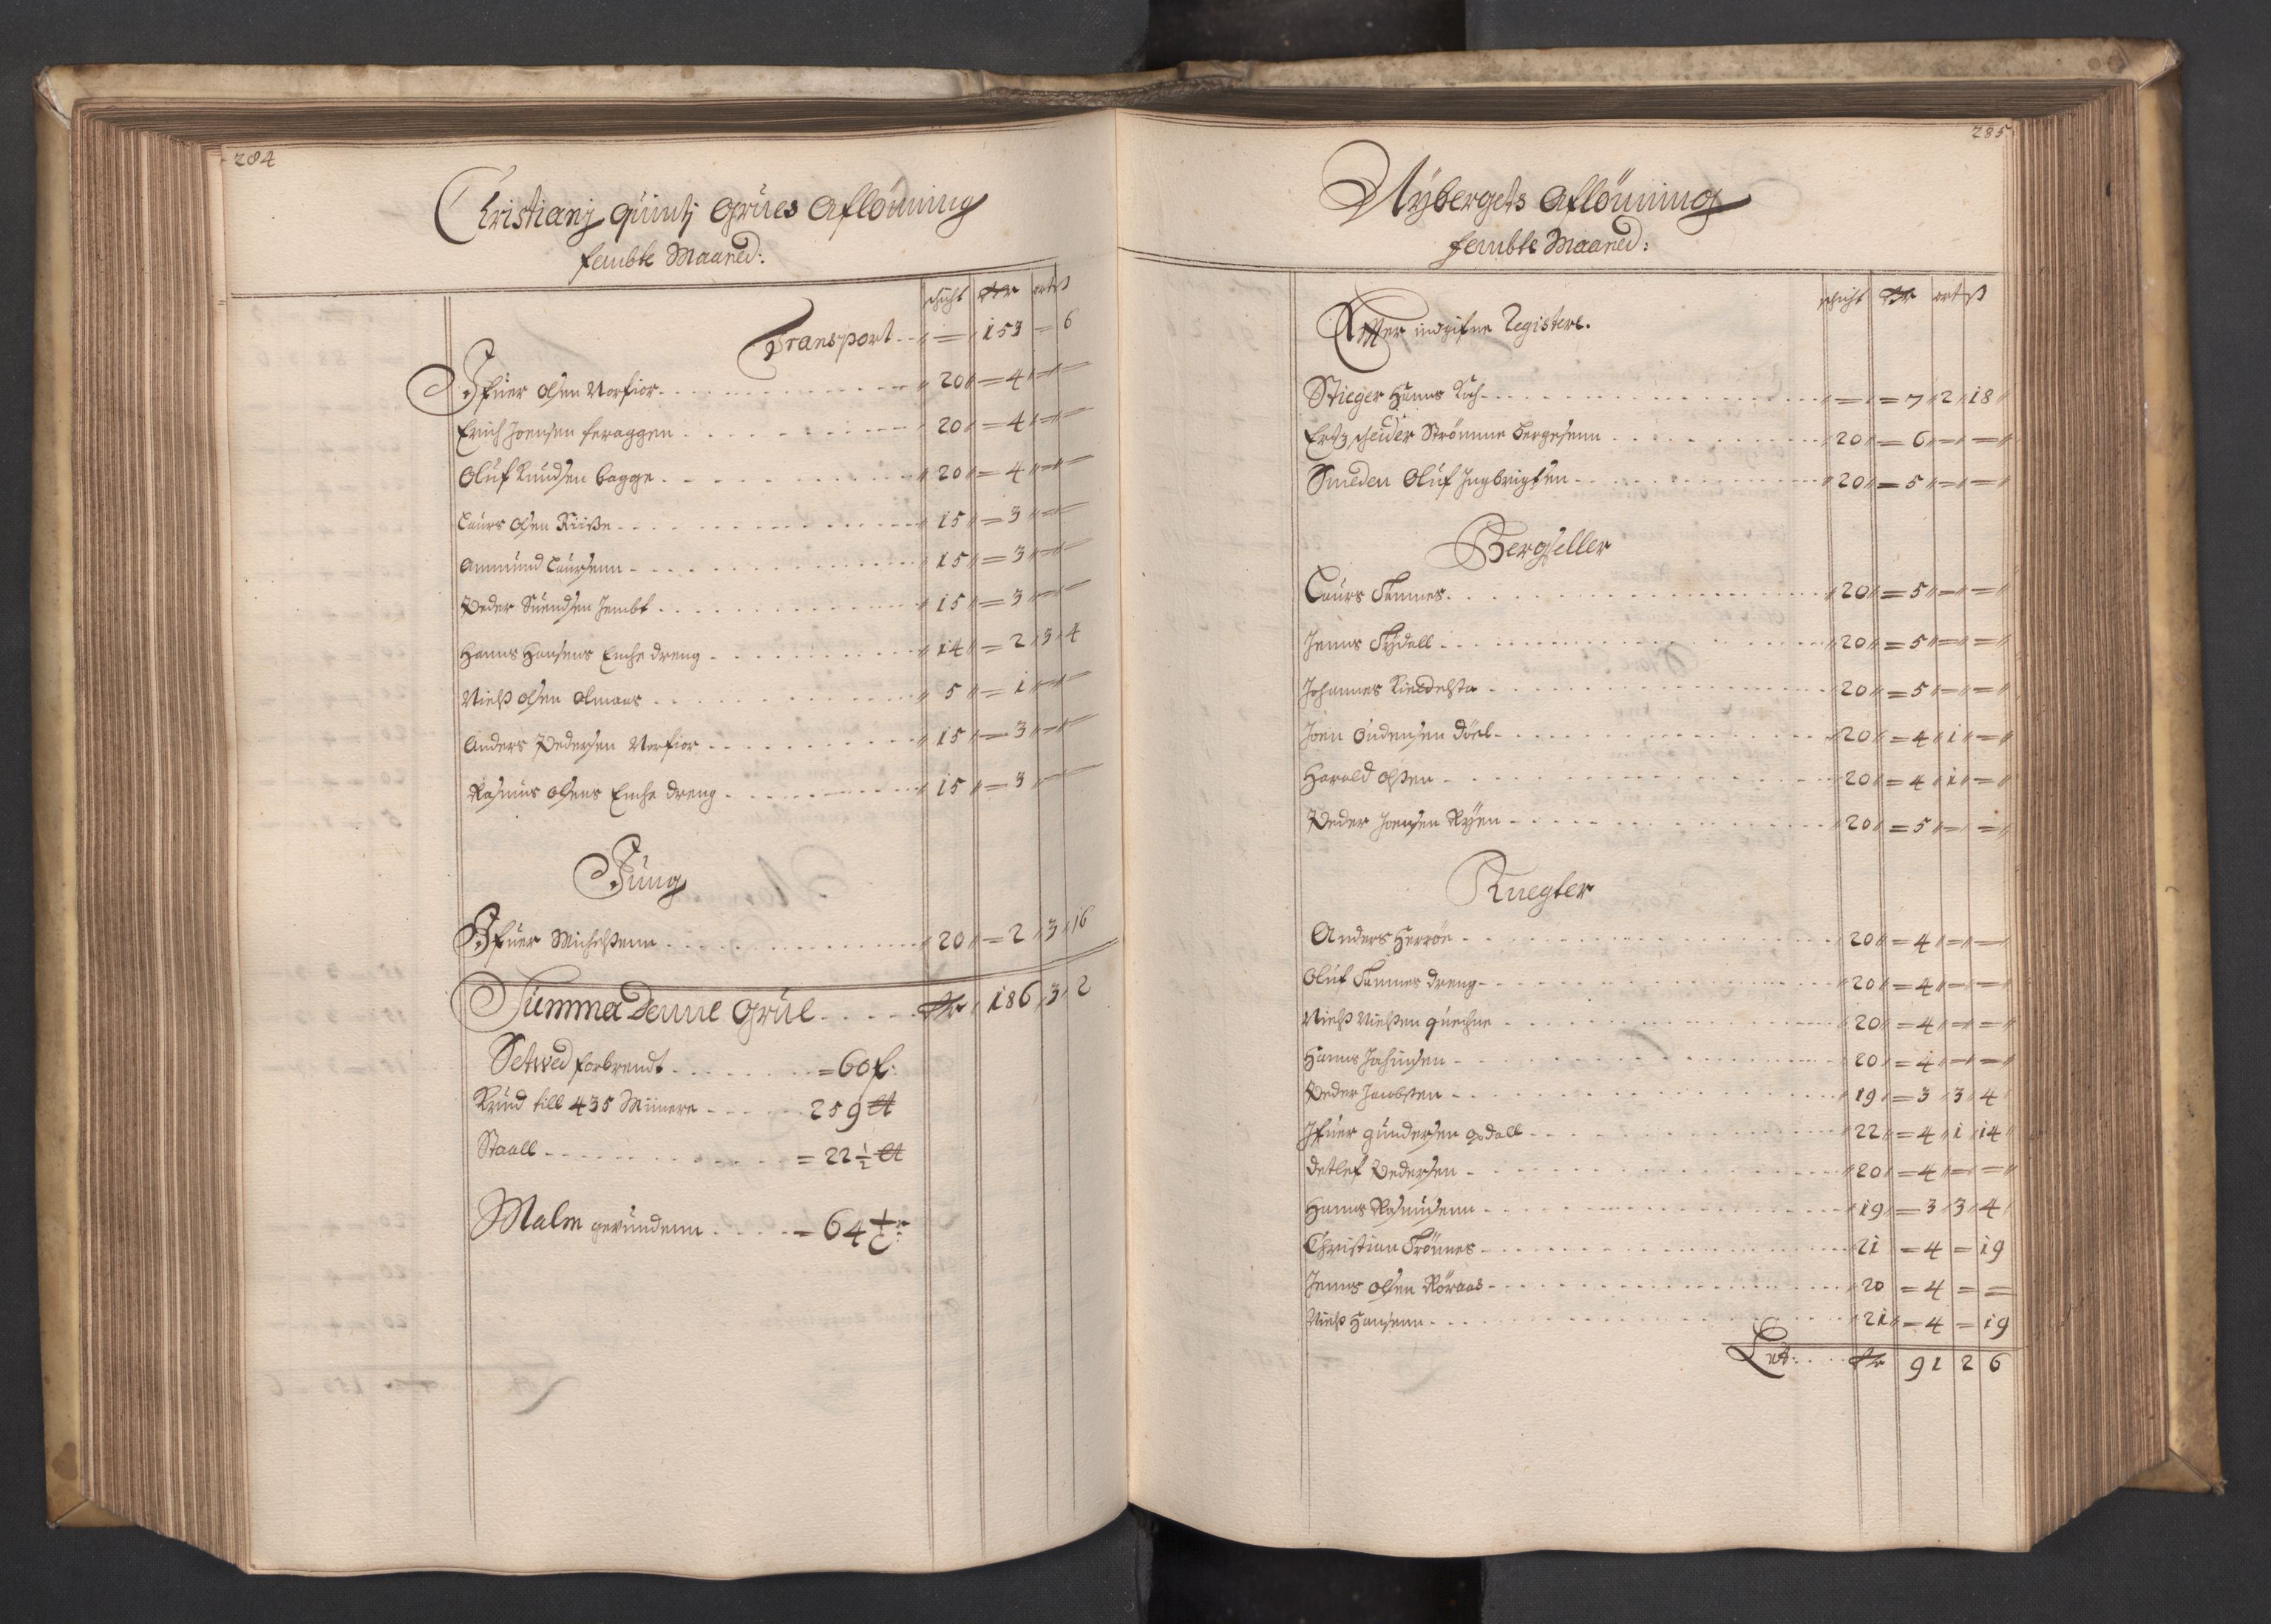 284
Christianj Quintj Grues Aflönning
fembte Maaned:
schicht Rdr ort ß
Transport - - " = " 153 = 6
Ifuer Olsen Norfior - - - " 20 " = 4 " = " =
Erich Joensen feraggen - - - 20 " = 4 " = " =
Oluf Knudsen bagge - - - " 20 " = 4 " = " =
Laurs Olsen Riiße - - - " 15 " = 3 " = " =
Ammund Laursenn - - - " 15 " = 3 " = " =
Peder Suendsen Jembt - - - " 15 " = 3 " = " =
Hanns Hansens Enche dreng - - - " 14 " = 2 " 3 " 4
Nielß Olsen Almaas - - - " 5 " = 1 " = " =
Anders Pedersen Norfior - - - " 15 " = 3 " = " =
Rasmus Olsens Enche dreng - - - " 15 " = 3 " = " =
Jung
Ifuer Michelßenn - - - " 20 " = 2 " 3 " 16
Summa Denne Grue - - - Rdr " 186 " 3 " 2
Setwed forbrendt - - - = 60 f:
Krud till 435 Miinere - - - 259 ℔
Staall - - - = 22 1/2 ℔
Malm gevundenn - - - = 64
285
Nybergets Aflönning
fembte Maaned:
schicht Rdr ort ß
Effter indgifne Registere.
Stieger Hanns Koch - - - " = " = 7 " 2 " 18 "
Ertzscheider Strömme Bergesenn - - - " 20 " = 6 " = " = "
Smeden Oluf Ingbrigtsen - - - " 20 " = 5 " = " = "
Bergseller
Laurs Tamnes - - - " 20 " = 5 " = " = "
Jenns Tydall - - - " 20 " = 5 " = " = "
Johannes - - - " 20 " = 5 " = " = "
Joen Endensen döel - - - " 20 " = 4 " 1 " = "
Harald Olßen - - - " 20 " = 4 " 1 " = "
Peder Joensen Ryen - - - " 20 " = 5 " = " = "
Knegter
Anders Herröe - - - 20 " = 4 " = " =
Oluf Tamnes dreng - - - " 20 " = 4 " = " =
Nielß Nielßen quechne - - - " 20 " = 4 " = " = "
Hanns Jahnsen - - - 20 " = 4 " = " = "
Peder Jacobßen - - - " 19 " = 3 " 3 " 4 "
Ifuer gundersen Opdall - - - " 22 " = 4 " 1 " 14 "
detlef Pedersen - - - " 20 " = 4 " = " = "
Hanns Rasmusenn - - - " 19 " = 3 " 3 " 4 "
Christian Trönnes - - - " 21 = 4 = 19
Jenns Olsen Röraas - - - " 20 = 4 = =
Nielß Hansenn - - - " 21 " = 4 = 19
Lat: - - - Rdr 91 2 6